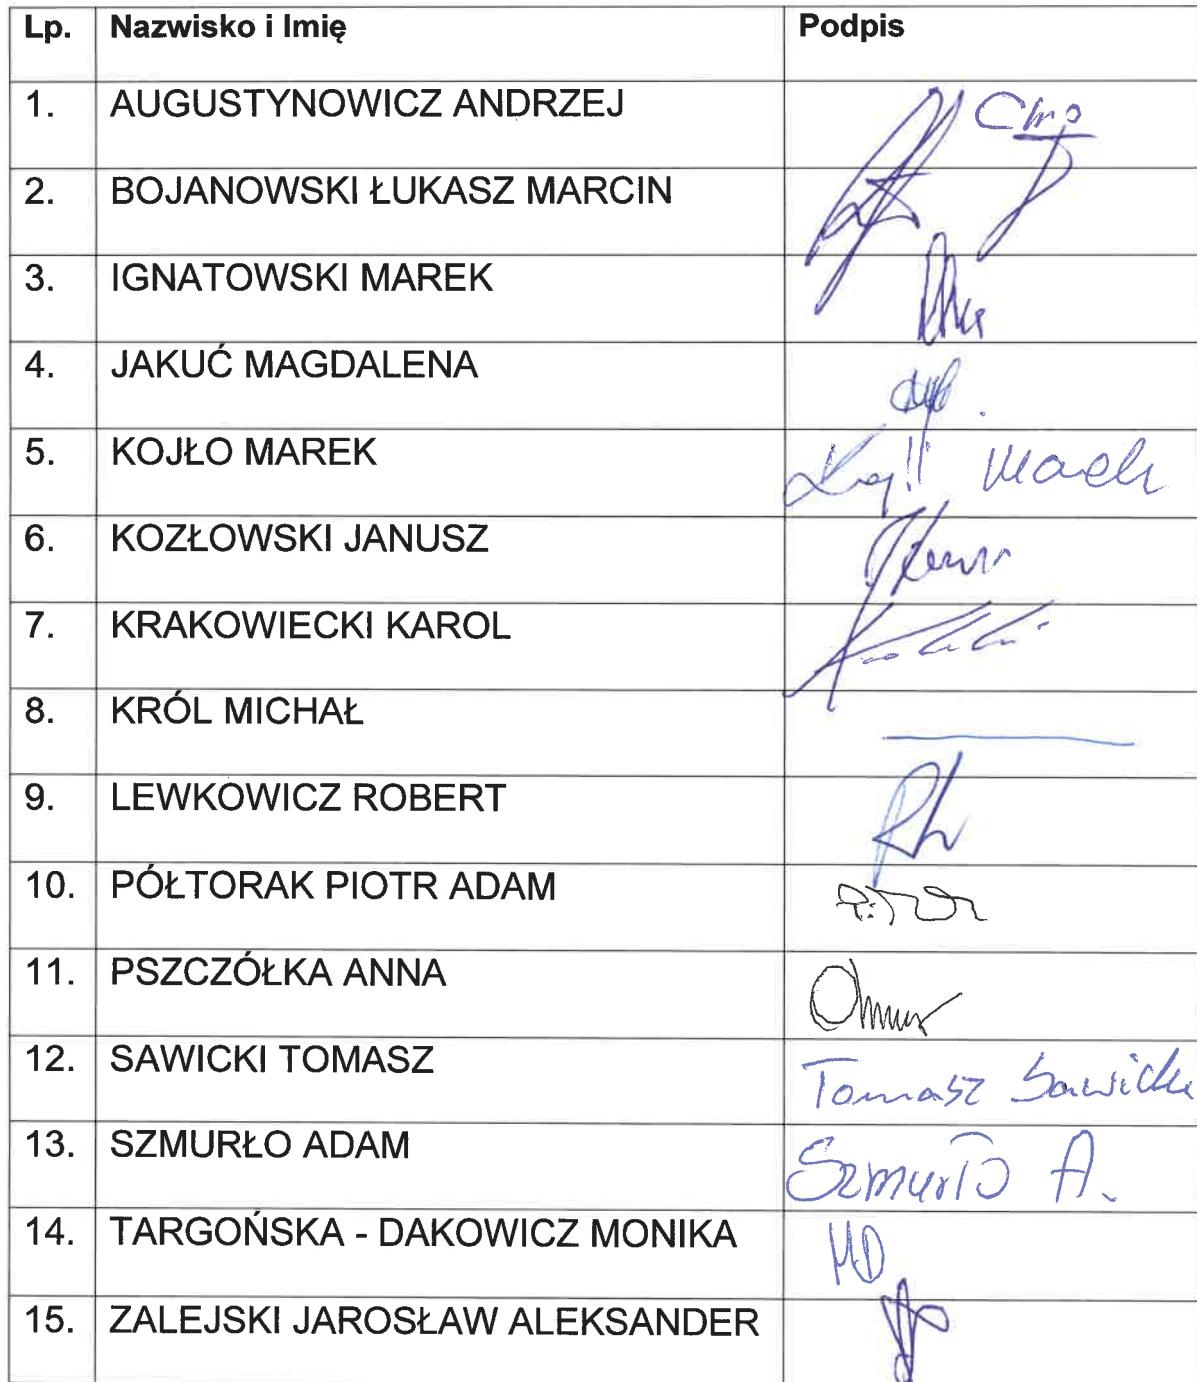 Lp. Nazwisko i Imię Podpis
1. AUGUSTYNOWICZ ANDRZEJ
2. BOJANOWSKI ŁUKASZ MARCIN
3. IGNATOWSKI MAREK
4. JAKUĆ MAGDALENA
5. KOJŁO MAREK
6. KOZŁOWSKI JANUSZ
7. KRAKOWIECKI KAROL
8. KRÓL MICHAŁ
9. LEWKOWICZ ROBERT
10. PÓŁTORAK PIOTR ADAM
11. PSZCZÓŁKA ANNA
12. SAWICKI TOMASZ Tomasz Sawicki
13. SZMURŁO ADAM Szmurło A.
14. TARGOŃSKA - DAKOWICZ MONIKA MD
15. ZALEJSKI JAROSŁAW ALEKSANDER